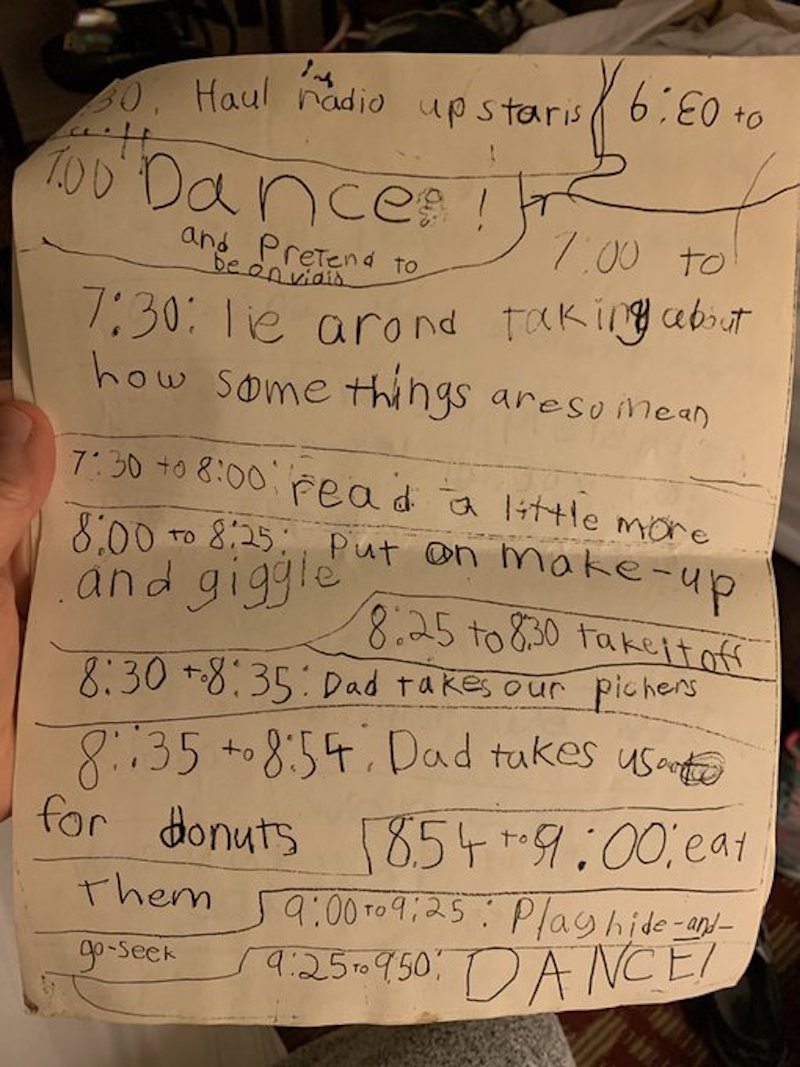 :30. Haul my radio up staris
6:30 to
7:00 Dance!
and Pretend to
be on
7:00 to
7:30: lie arond taking about
how some things are so mean
7:30 to 8:00: read a little more
8:00 to 8:25: put on make-up
and giggle
8:25 to 8:30 take it off
8:30 to 8:35: Dad takes our pichers
8:35 to 8:54: Dad takes us
for donuts
8:54 to 9:00: eat
them
9:00 to 9:25: Play hide-and-
go-seek
9:25 to 9:50: DANCE!